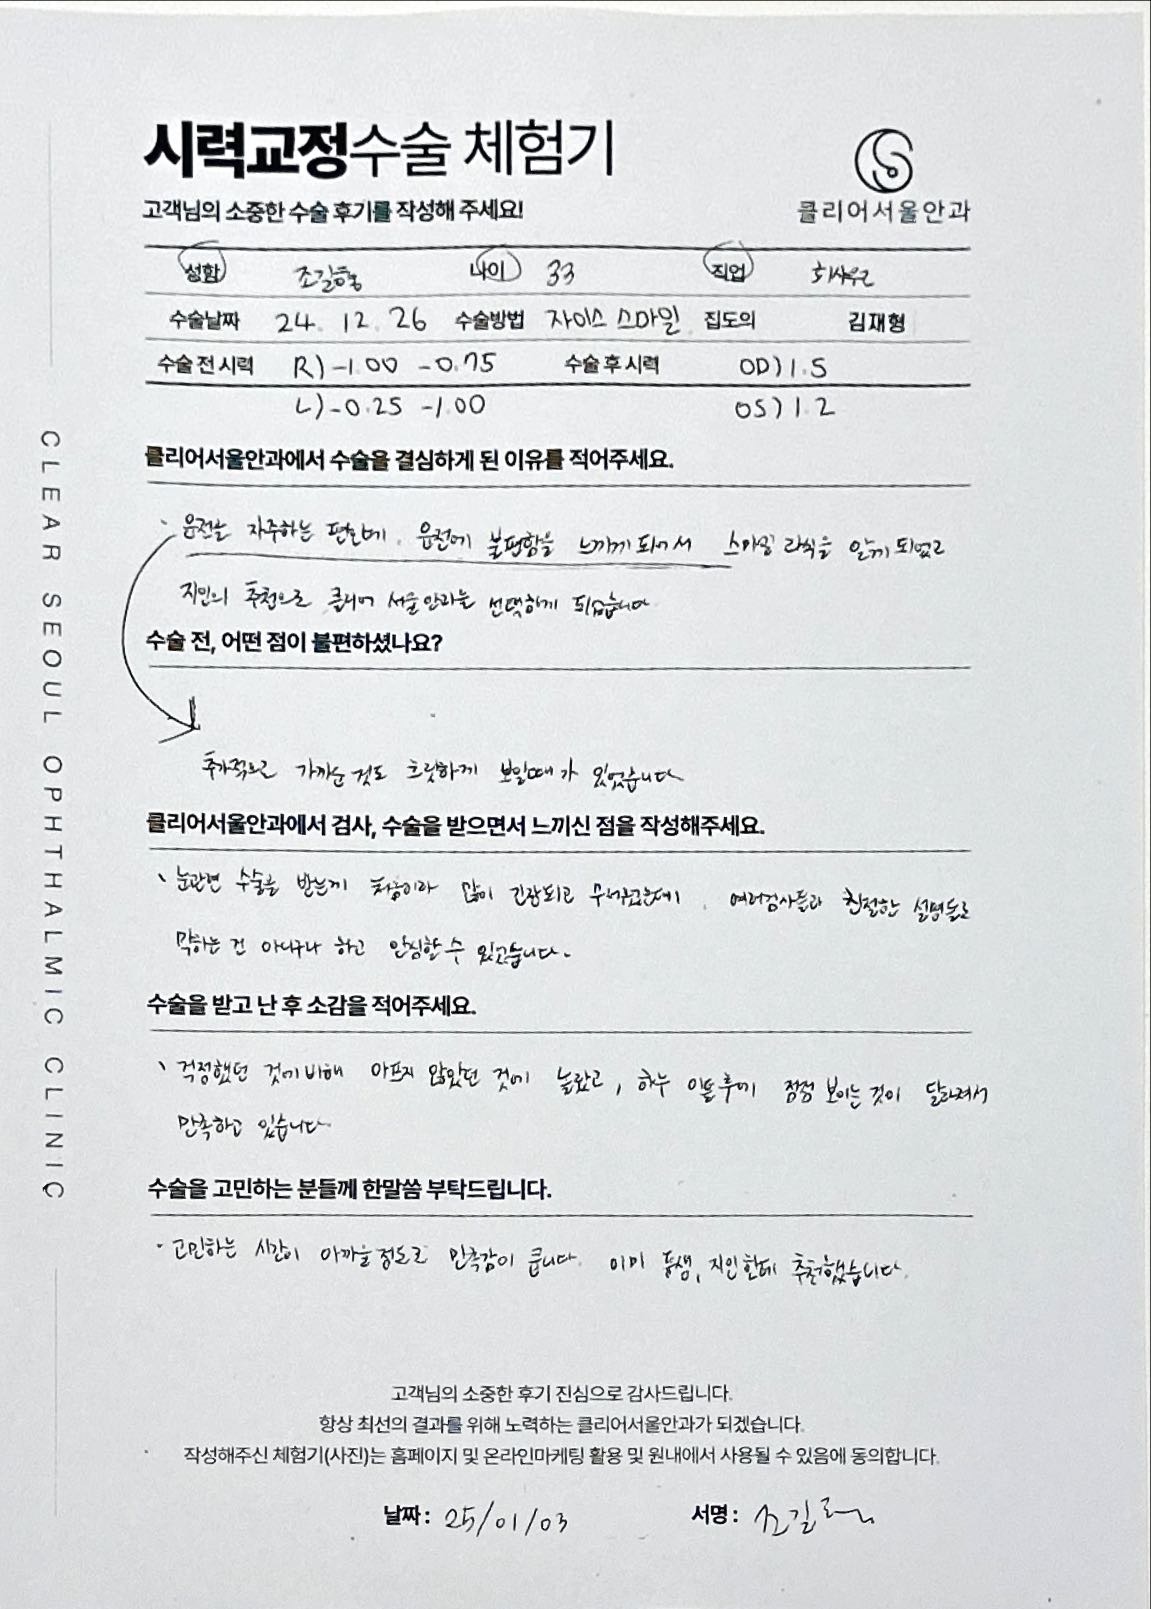 시력교정수술 체험기
고객님의 소중한 수술 후기를 작성해 주세요!
클리어서울안과
성함 조길흠 나이 33 직업 회사원
수술날짜 24. 12. 26 수술방법 자이스 스마일 집도의 김재형
수술 전 시력 R) -1.00 -0.75 수술 후 시력 OD) 1.5
L) -0.25 -1.00 OS) 1.2
클리어서울안과에서 수술을 결심하게 된 이유를 적어주세요.
· 운전을 자주하는 편인데. 운전에 불편함을 느끼게 되어서 스마일 라식을 알게 되었고
지인의 추천으로 클리어 서울 안과를 선택하게 되었습니다
수술 전, 어떤 점이 불편하셨나요?
추가적으로 가까운 것도 흐릿하게 보일때가 있었습니다
클리어서울안과에서 검사, 수술을 받으면서 느끼신 점을 작성해주세요.
· 눈관련 수술을 받는게 처음이라 많이 긴장되고 무서웠는데, 여러검사들과 친절한 설명들로
막하는 건 아니구나 하고 안심할 수 있었습니다.
수술을 받고 난 후 소감을 적어주세요.
· 걱정했던 것에 비해 아프지 않았던 것에 놀랐고, 하루 이틀 후에 점점 보이는 것이 달라져서
만족하고 있습니다
수술을 고민하는 분들께 한말씀 부탁드립니다.
· 고민하는 시간이 아까울 정도로 만족감이 큽니다. 이미 동생, 지인한테 추천했습니다.
고객님의 소중한 후기 진심으로 감사드립니다.
항상 최선의 결과를 위해 노력하는 클리어서울안과가 되겠습니다.
작성해주신 체험기(사진)는 홈페이지 및 온라인마케팅 활용 및 원내에서 사용될 수 있음에 동의합니다.
날짜 : 25/01/03 서명 :
CLEAR SEOUL OPHTHALMIC CLINIC